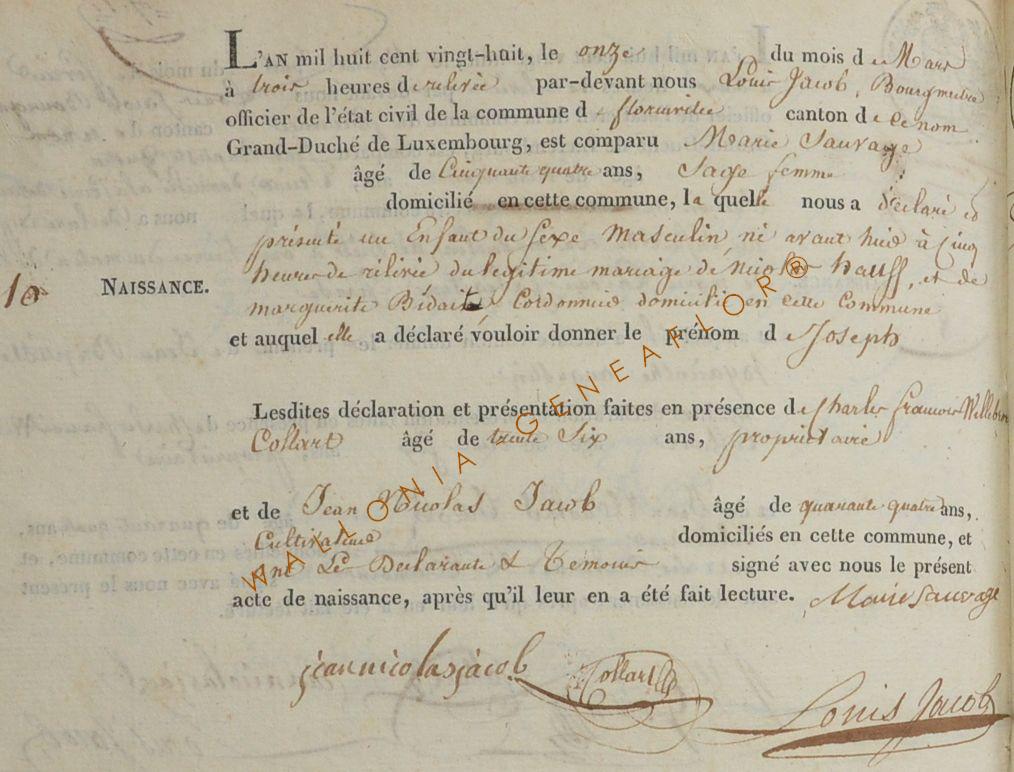 L'AN mil huit cent vingt-huit, le onze du mois de Mars
à trois heures de rélivée par-devant nous Louis Jacob, Bourgmestre
officier de l'état civil de la commune de florenville canton de ce nom
Grand-Duché de Luxembourg, est comparu Marie Sauvage
âgé de Cinquante quatre ans, Sage femme
domicilié en cette commune, la quelle nous a déclaré et
présenté un Enfant du sexe Masculin né avant hier à Cinq
heures de rélivée du légitime mariage de Nicolas hauff, et de
10 NAISSANCE.
marguerite Bidaite Cordonnier domicilié en cette Commune
et auquel elle a déclaré vouloir donner le prénom de Joseph
Lesdites déclaration et présentation faites en présence de Charles francois
Collart âgé de trente Six ans, propriétaire
et de Jean Nicolas Jacob âgé de quarante quatre ans,
Cultivateur domiciliés en cette commune, et
ont Les Declarante & Temoins signé avec nous le présent
acte de naissance, après qu'il leur en a été fait lecture. Marie Sauvage
jean nicolas jacob Collart Louis Jacob
WALLONIA GENEAFLOR®